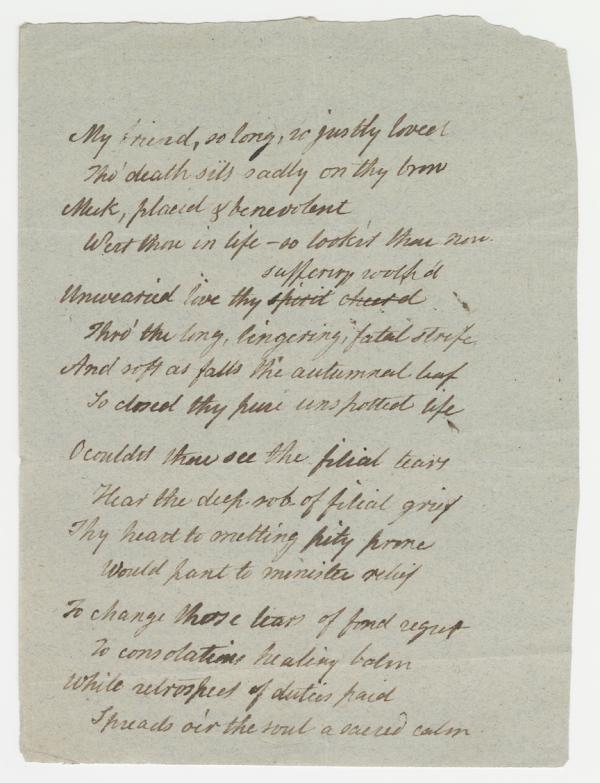 My friend, so long, so justly loved
Tho' death sits sadly on thy brow
Meek, placid & benevolent
Wert thou in life – so look'st thou now.
suffering sooth'd
Unwearied love thy spirit cheer'd
Thro' the long, lingering, fatal strife
And soft as falls the autumnal leaf
So closed thy pure unspotted life
O couldst thou see the filial tears
Hear the deep sob of filial grief
Thy heart to melting pity prone
Would pant to minister relief
To change those tears of fond regret
To consolations healing balm
While retrospect of duties paid
Spreads o'er the soul a sacred calm